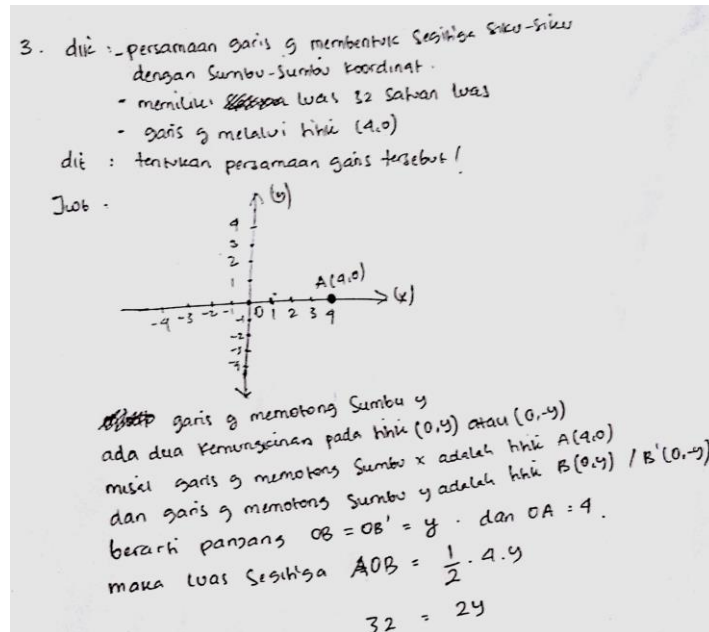 3. dik : - persamaan garis g membentuk Segitiga Siku-siku
dengan Sumbu-Sumbu koordinat.
- memiliki luas 32 satuan luas
- garis g melalui titik (4,0)
dit : tentukan persamaan garis tersebut!
Jwb.
(y)
4
3
2
1
A(4,0)
(x)
-4 -3 -2 -1 0 1 2 3 4
-1
-2
-3
-4
garis g memotong Sumbu y
ada dua kemungkinan pada titik (0,y) atau (0,-y)
misal garis g memotong Sumbu x adalah titik A(4,0)
dan garis g memotong Sumbu y adalah titik B(0,y) / B'(0,-y)
berarti panjang OB = OB' = y. dan OA = 4.
maka luas Segitiga AOB = 1/2 . 4.y
32 = 2y